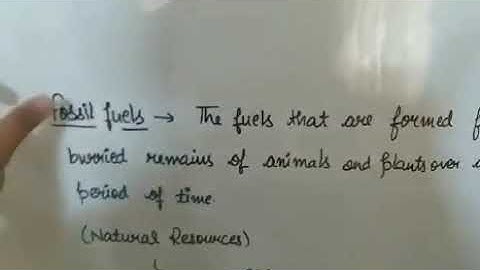 Fossil fuels → The fuels that are formed f
burried remains of animals and plants over a
period of time.
(Natural Resources)